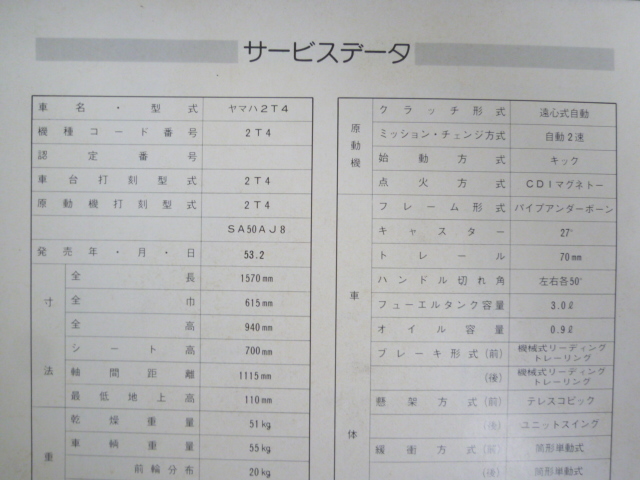 サービスデータ
車名・型式 ヤマハ2T4
機種コード番号 2T4
認定番号
車台打刻型式 2T4
原動機打刻型式 2T4
SA50AJ8
発売年・月・日 53.2
寸法
全長 1570mm
全巾 615mm
全高 940mm
シート高 700mm
軸間距離 1115mm
最低地上高 110mm
重
乾燥重量 51kg
車輌重量 55kg
前輪分布 20kg
原動機
クラッチ形式 遠心式自動
ミッション・チェンジ方式 自動2速
始動方式 キック
点火方式 CDIマグネトー
車体
フレーム形式 パイプアンダーボーン
キャスター 27°
トレール 70mm
ハンドル切れ角 左右各50°
フューエルタンク容量 3.0ℓ
オイル容量 0.9ℓ
ブレーキ形式(前) 機械式リーディング
トレーリング
(後) 機械式リーディング
トレーリング
懸架方式(前) テレスコピック
(後) ユニットスイング
緩衝方式(前) 筒形単動式
(後) 筒形単動式